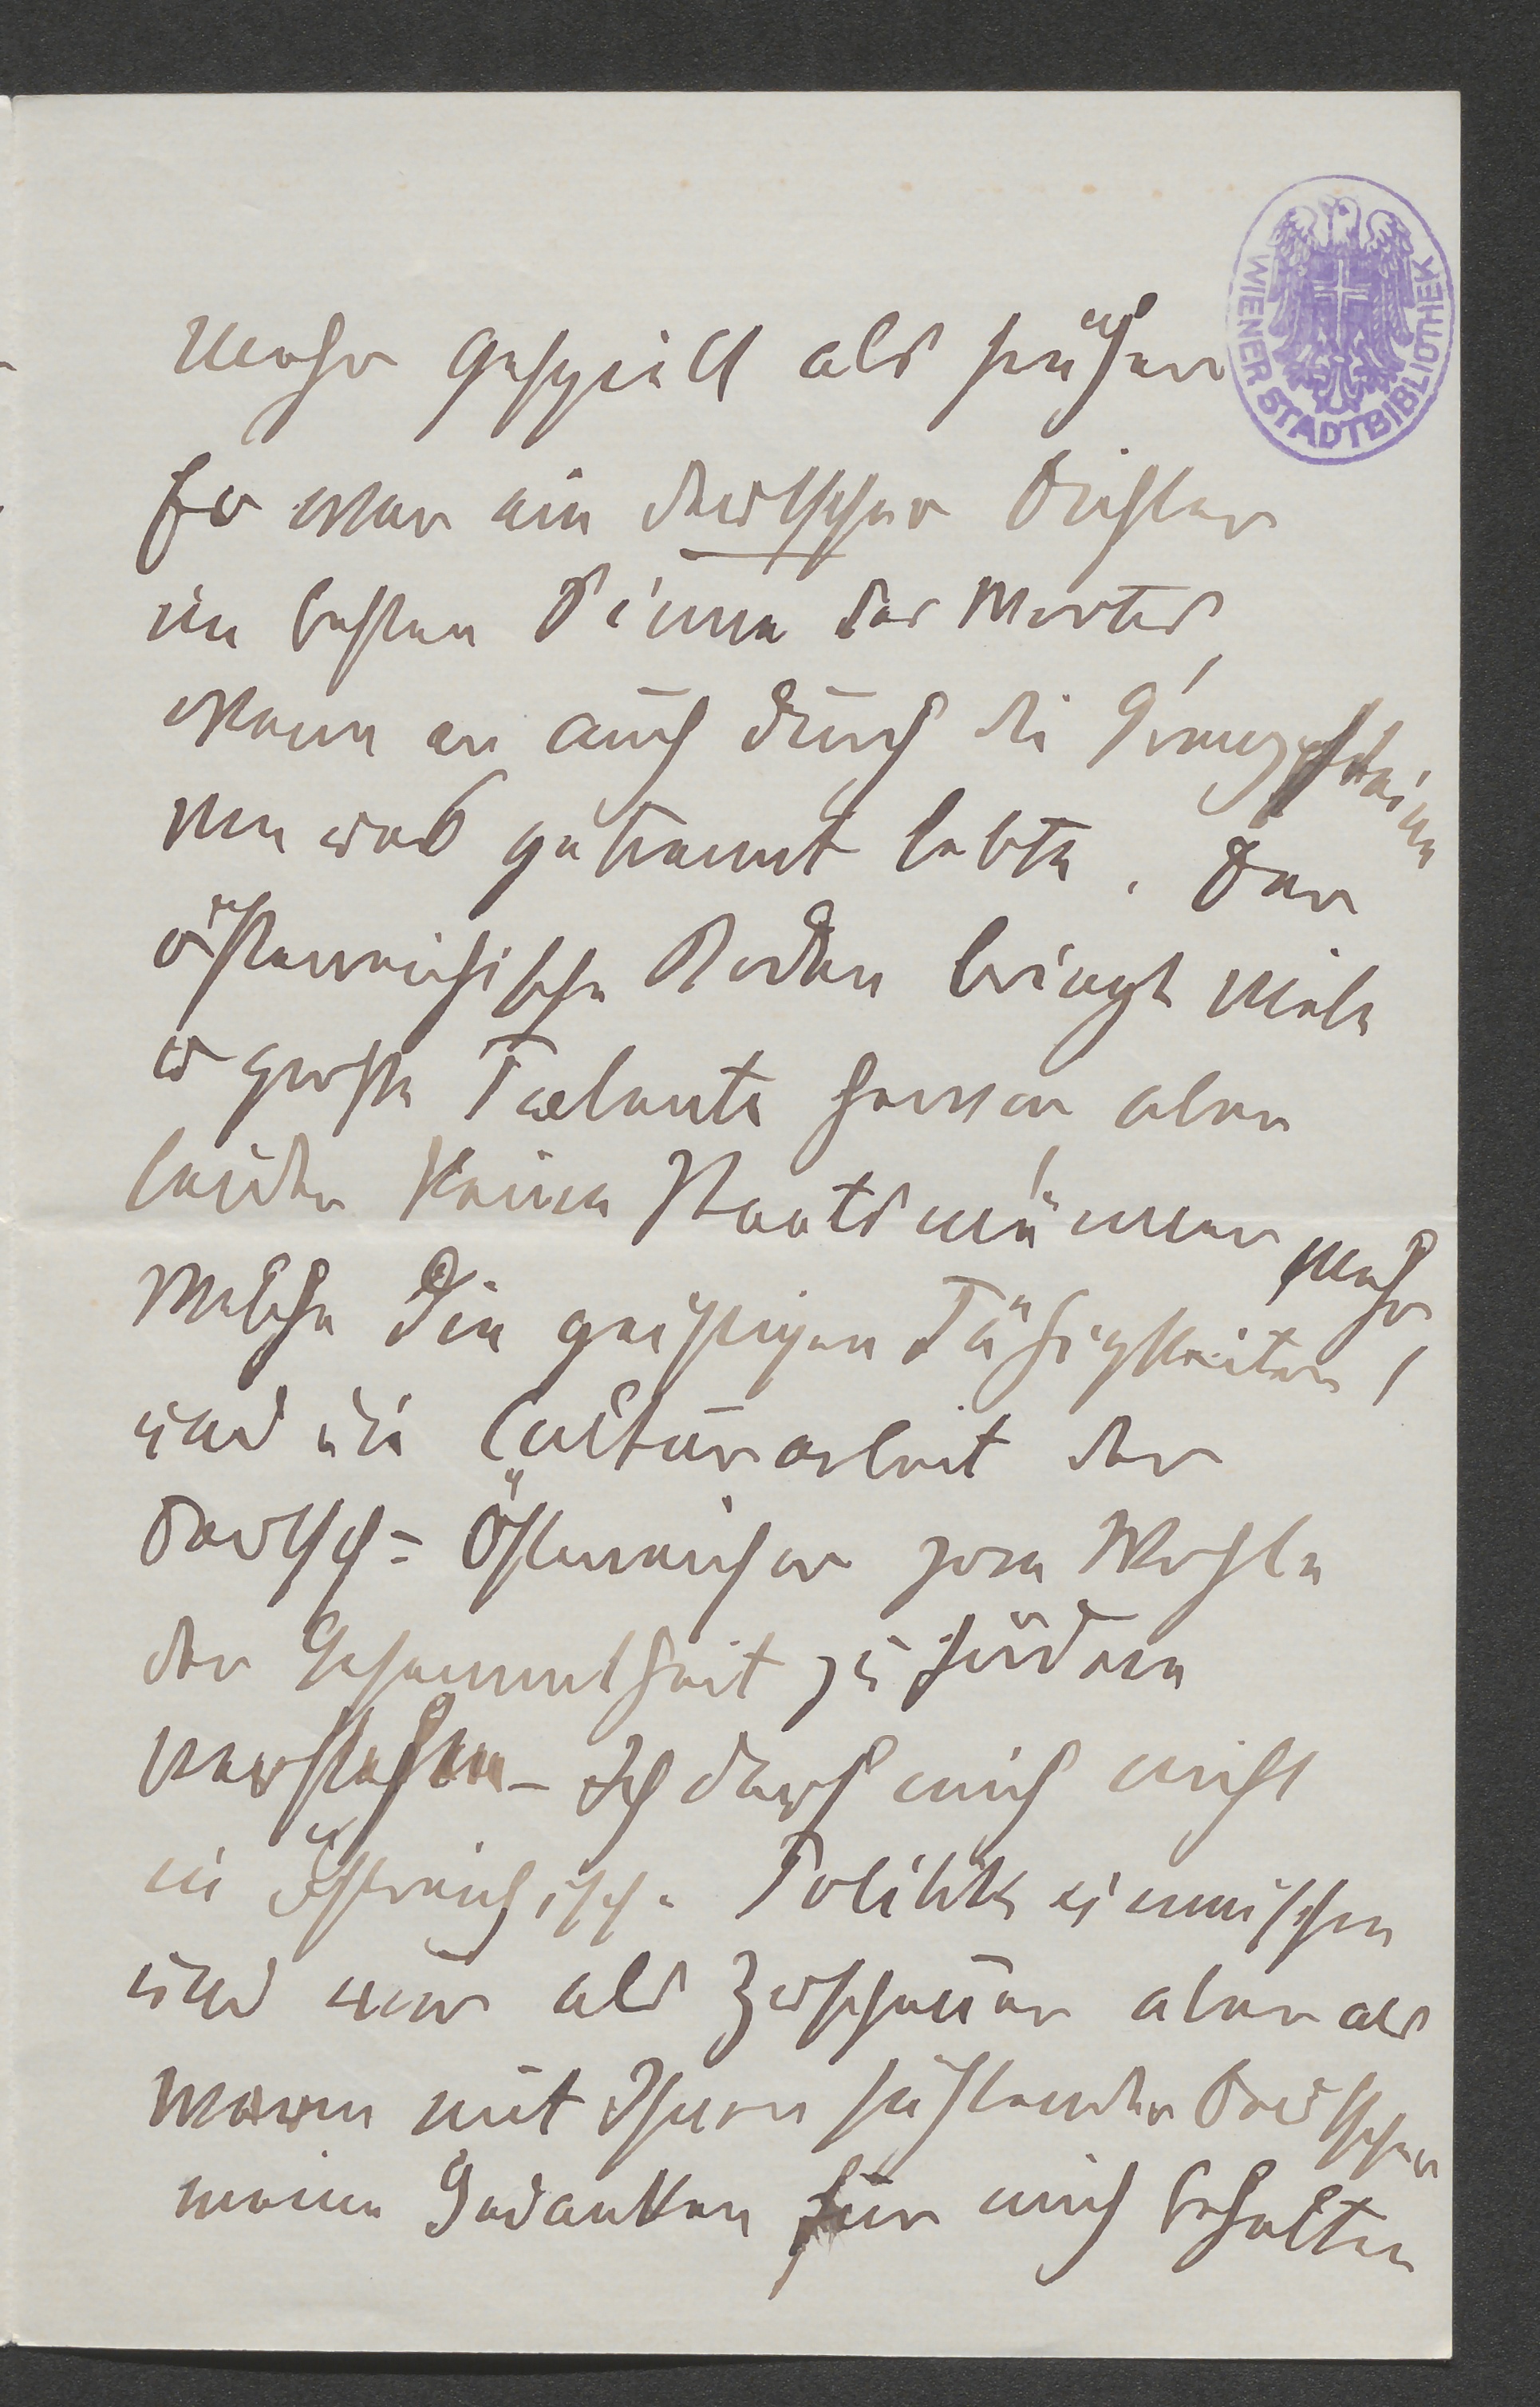 WIENER STADTBIBLIOTHEK
mehr gespielt als früher
Er war ein deutscher Dichter
im besten Sinne des Wortes,
wenn er auch durch die Grenzpfähle
von uns getrennt lebte. Der
österreichische Boden bringt viele
u große Talente hervor aber
leider keine Staatsmänner mehr,
welche die geistigen Fähigkeiten
und die Culturarbeit der
Deutsch-Österreicher zum Wohle
der Gesammtheit zu fördern
verstehen – Ich darf mich nicht
in östreichische Politik einmischen
und nur als Zuschauer aber als
warm mit Ihnen fühlender Deutscher
meine Gedanken für mich behalten